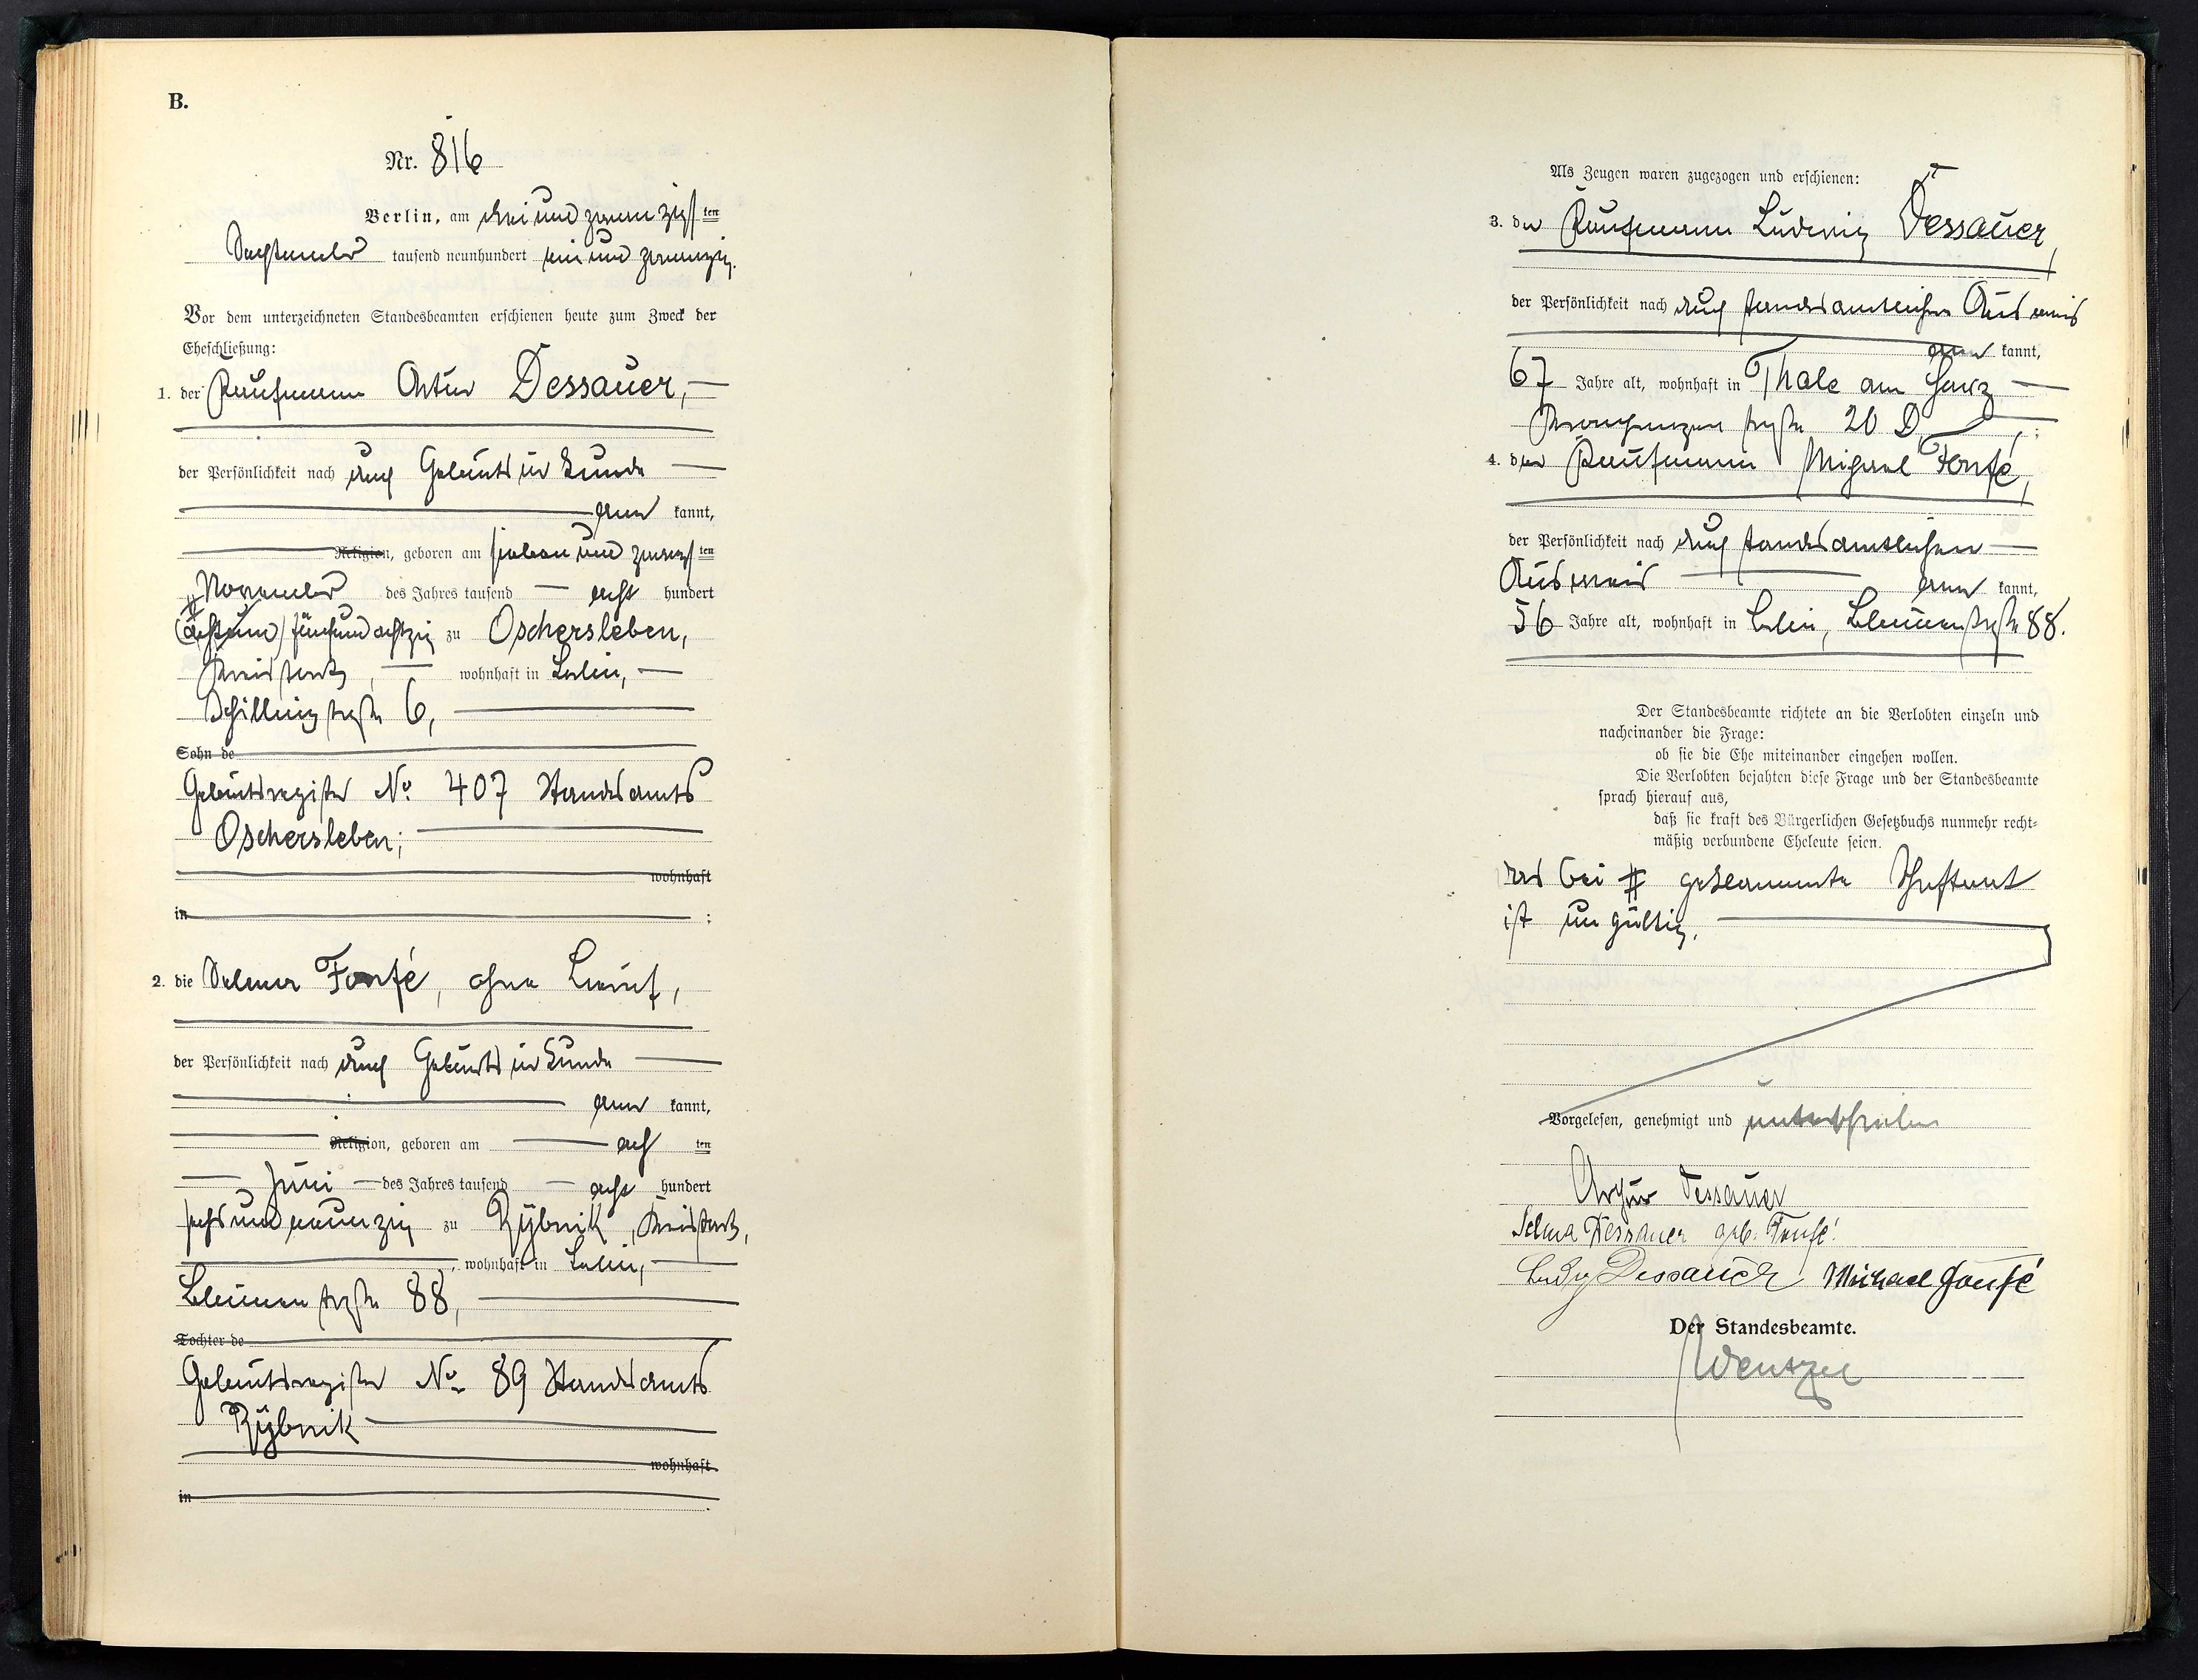 B.
Nr. 816
Berlin, am dreiundzwanzigsten
September tausend neunhundert einundzwanzig.
Vor dem unterzeichneten Standesbeamten erschienen heute zum Zweck der
Eheschließung:
1. der Kaufmann Artur Dessauer, —
der Persönlichkeit nach durch Geburtsurkunde —
— aner kannt,
— Religion, geboren am siebenundzwanzigsten
November des Jahres tausend — acht hundert
(achtund) fünfundachtzig zu Oschersleben,
Kreis , — wohnhaft in Berlin, —
Schillingstraße 6, —
Sohn de
Geburtsregister No. 407 Standesamts
Oschersleben; —
wohnhaft
in ;
2. die Selma Fonfé, ohne Beruf,
der Persönlichkeit nach durch Geburtsurkunde —
aner kannt,
Religion, geboren am — acht ten
— Juni — des Jahres tausend — acht hundert
sechsundneunzig zu Rybnik,
, wohnhaft in Berlin, —
Blumenstraße 88, —
Tochter de
Geburtsregister No. 89 Standesamts
Rybnik —
wohnhaft
in .
Als Zeugen waren zugezogen und erschienen:
3. der Kaufmann Ludwig Dessauer,
der Persönlichkeit nach durch standesamtlichen Ausweis
aner kannt,
67 Jahre alt, wohnhaft in Thale am Harz —
straße 20 D ;
4. der Kaufmann Michael Fonfé,
der Persönlichkeit nach durch standesamtlichen —
Ausweis — aner kannt,
56 Jahre alt, wohnhaft in Berlin, Blumenstraße 88.
Der Standesbeamte richtete an die Verlobten einzeln und
nacheinander die Frage:
ob sie die Ehe miteinander eingehen wollen.
Die Verlobten bejahten diese Frage und der Standesbeamte
sprach hierauf aus,
daß sie kraft des Bürgerlichen Gesetzbuchs nunmehr recht-
mäßig verbundene Eheleute seien.
Das bei # geklammerte Schriftwort
ist ungültig. —
Vorgelesen, genehmigt und unterschrieben
Arthur Dessauer
Selma Dessauer geb. Fonfé.
Ludwig Dessauer Michael Fonfé
Der Standesbeamte.
Wentzel